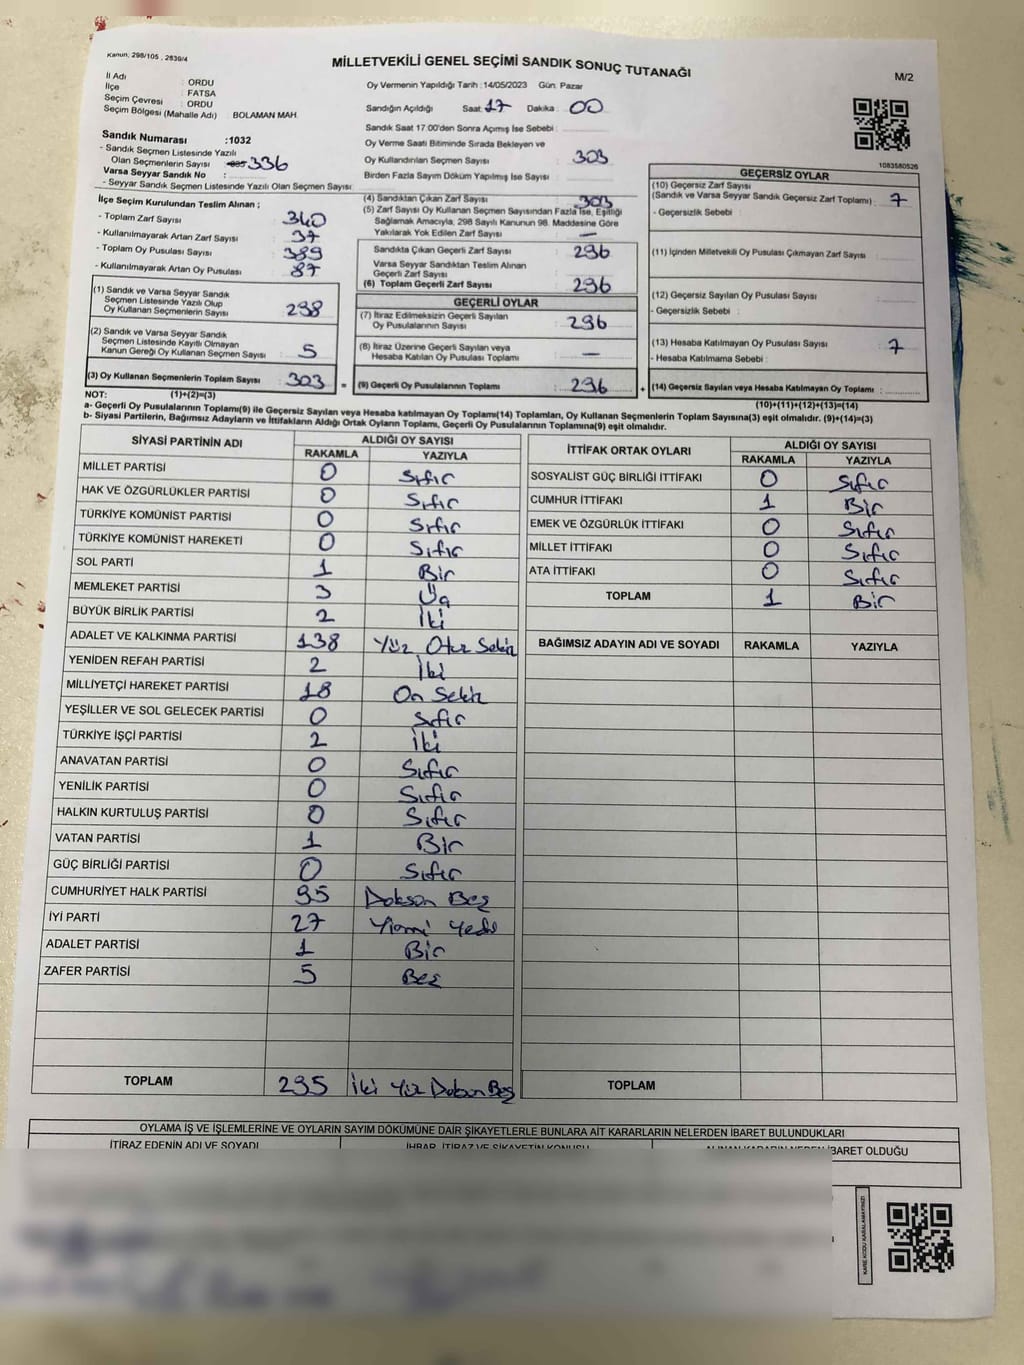 Kanun: 298/105 , 2839/4
MİLLETVEKİLİ GENEL SEÇİMİ SANDIK SONUÇ TUTANAĞI
M/2
İl Adı : ORDU
İlçe : FATSA
Seçim Çevresi : ORDU
Seçim Bölgesi (Mahalle Adı) : BOLAMAN MAH.
Oy Vermenin Yapıldığı Tarih :14/05/2023 Gün: Pazar
Sandığın Açıldığı Saat: 17 Dakika : 00
Sandık Saat 17.00'den Sonra Açımış İse Sebebi :
Sandık Numarası :1032
- Sandık Seçmen Listesinde Yazılı
Olan Seçmenlerin Sayısı 336
Varsa Seyyar Sandık No :
- Seyyar Sandık Seçmen Listesinde Yazılı Olan Seçmen Sayısı:
Oy Verme Saati Bitiminde Sırada Bekleyen ve
Oy Kullandırılan Seçmen Sayısı : 303
Birden Fazla Sayım Döküm Yapılmış İse Sayısı :
1083580526
İlçe Seçim Kurulundan Teslim Alınan ;
- Toplam Zarf Sayısı : 340
- Kullanılmayarak Artan Zarf Sayısı : 37
- Toplam Oy Pusulası Sayısı : 389
- Kullanılmayarak Artan Oy Pusulası : 87
(1) Sandık ve Varsa Seyyar Sandık
Seçmen Listesinde Yazılı Olup
Oy Kullanan Seçmenlerin Sayısı : 298
(2) Sandık ve Varsa Seyyar Sandık
Seçmen Listesinde Kayıtlı Olmayan
Kanun Gereği Oy Kullanan Seçmen Sayısı : 5
(3) Oy Kullanan Seçmenlerin Toplam Sayısı : 303 =
(4) Sandıktan Çıkan Zarf Sayısı : 303
(5) Zarf Sayısı Oy Kullanan Seçmen Sayısından Fazla İse, Eşitliği
Sağlamak Amacıyla, 298 Sayılı Kanunun 98. Maddesine Göre
Yakılarak Yok Edilen Zarf Sayısı : —
Sandıkta Çıkan Geçerli Zarf Sayısı : 296
Varsa Seyyar Sandıktan Teslim Alınan
Geçerli Zarf Sayısı :
(6) Toplam Geçerli Zarf Sayısı : 296
GEÇERLİ OYLAR
(7) İtiraz Edilmeksizin Geçerli Sayılan
Oy Pusulalarının Sayısı : 296
(8) İtiraz Üzerine Geçerli Sayılan veya
Hesaba Katılan Oy Pusulası Toplamı : —
(9) Geçerli Oy Pusulalarının Toplamı : 296 +
GEÇERSİZ OYLAR
(10) Geçersiz Zarf Sayısı
(Sandık ve Varsa Seyyar Sandık Geçersiz Zarf Toplamı) : 7
- Geçersizlik Sebebi :
(11) İçinden Milletvekili Oy Pusulası Çıkmayan Zarf Sayısı :
(12) Geçersiz Sayılan Oy Pusulası Sayısı :
- Geçersizlik Sebebi :
(13) Hesaba Katılmayan Oy Pusulası Sayısı : 7
- Hesaba Katılmama Sebebi :
(14) Geçersiz Sayılan veya Hesaba Katılmayan Oy Toplamı :
NOT: (1)+(2)=(3)
(10)+(11)+(12)+(13)=(14)
a- Geçerli Oy Pusulalarının Toplamı(9) ile Geçersiz Sayılan veya Hesaba katılmayan Oy Toplamı(14) Toplamları, Oy Kullanan Seçmenlerin Toplam Sayısına(3) eşit olmalıdır. (9)+(14)=(3)
b- Siyasi Partilerin, Bağımsız Adayların ve İttifakların Aldığı Ortak Oyların Toplamı, Geçerli Oy Pusulalarının Toplamına(9) eşit olmalıdır.
SİYASİ PARTİNİN ADI ALDIĞI OY SAYISI
RAKAMLA YAZIYLA
MİLLET PARTİSİ 0 Sıfır
HAK VE ÖZGÜRLÜKLER PARTİSİ 0 Sıfır
TÜRKİYE KOMÜNİST PARTİSİ 0 Sıfır
TÜRKİYE KOMÜNİST HAREKETİ 0 Sıfır
SOL PARTİ 1 Bir
MEMLEKET PARTİSİ 3 Üç
BÜYÜK BİRLİK PARTİSİ 2 İki
ADALET VE KALKINMA PARTİSİ 138 Yüz Otuz Sekiz
YENİDEN REFAH PARTİSİ 2 İki
MİLLİYETÇİ HAREKET PARTİSİ 18 On Sekiz
YEŞİLLER VE SOL GELECEK PARTİSİ 0 Sıfır
TÜRKİYE İŞÇİ PARTİSİ 2 İki
ANAVATAN PARTİSİ 0 Sıfır
YENİLİK PARTİSİ 0 Sıfır
HALKIN KURTULUŞ PARTİSİ 0 Sıfır
VATAN PARTİSİ 1 Bir
GÜÇ BİRLİĞİ PARTİSİ 0 Sıfır
CUMHURİYET HALK PARTİSİ 95 Doksan Beş
İYİ PARTİ 27 Yirmi Yedi
ADALET PARTİSİ 1 Bir
ZAFER PARTİSİ 5 Beş
TOPLAM 295 İki Yüz Doksan Beş
İTTİFAK ORTAK OYLARI ALDIĞI OY SAYISI
RAKAMLA YAZIYLA
SOSYALİST GÜÇ BİRLİĞİ İTTİFAKI 0 Sıfır
CUMHUR İTTİFAKI 1 Bir
EMEK VE ÖZGÜRLÜK İTTİFAKI 0 Sıfır
MİLLET İTTİFAKI 0 Sıfır
ATA İTTİFAKI 0 Sıfır
TOPLAM 1 Bir
BAĞIMSIZ ADAYIN ADI VE SOYADI RAKAMLA YAZIYLA
TOPLAM
OYLAMA İŞ VE İŞLEMLERİNE VE OYLARIN SAYIM DÖKÜMÜNE DAİR ŞİKAYETLERLE BUNLARA AİT KARARLARIN NELERDEN İBARET BULUNDUKLARI
İTİRAZ EDENİN ADI VE SOYADI İHBAR, İTİRAZ VE ŞİKAYETİN KONUSU ALINAN KARARIN NEDEN İBARET OLDUĞU
KARE KODU KARALAMAYINIZ!